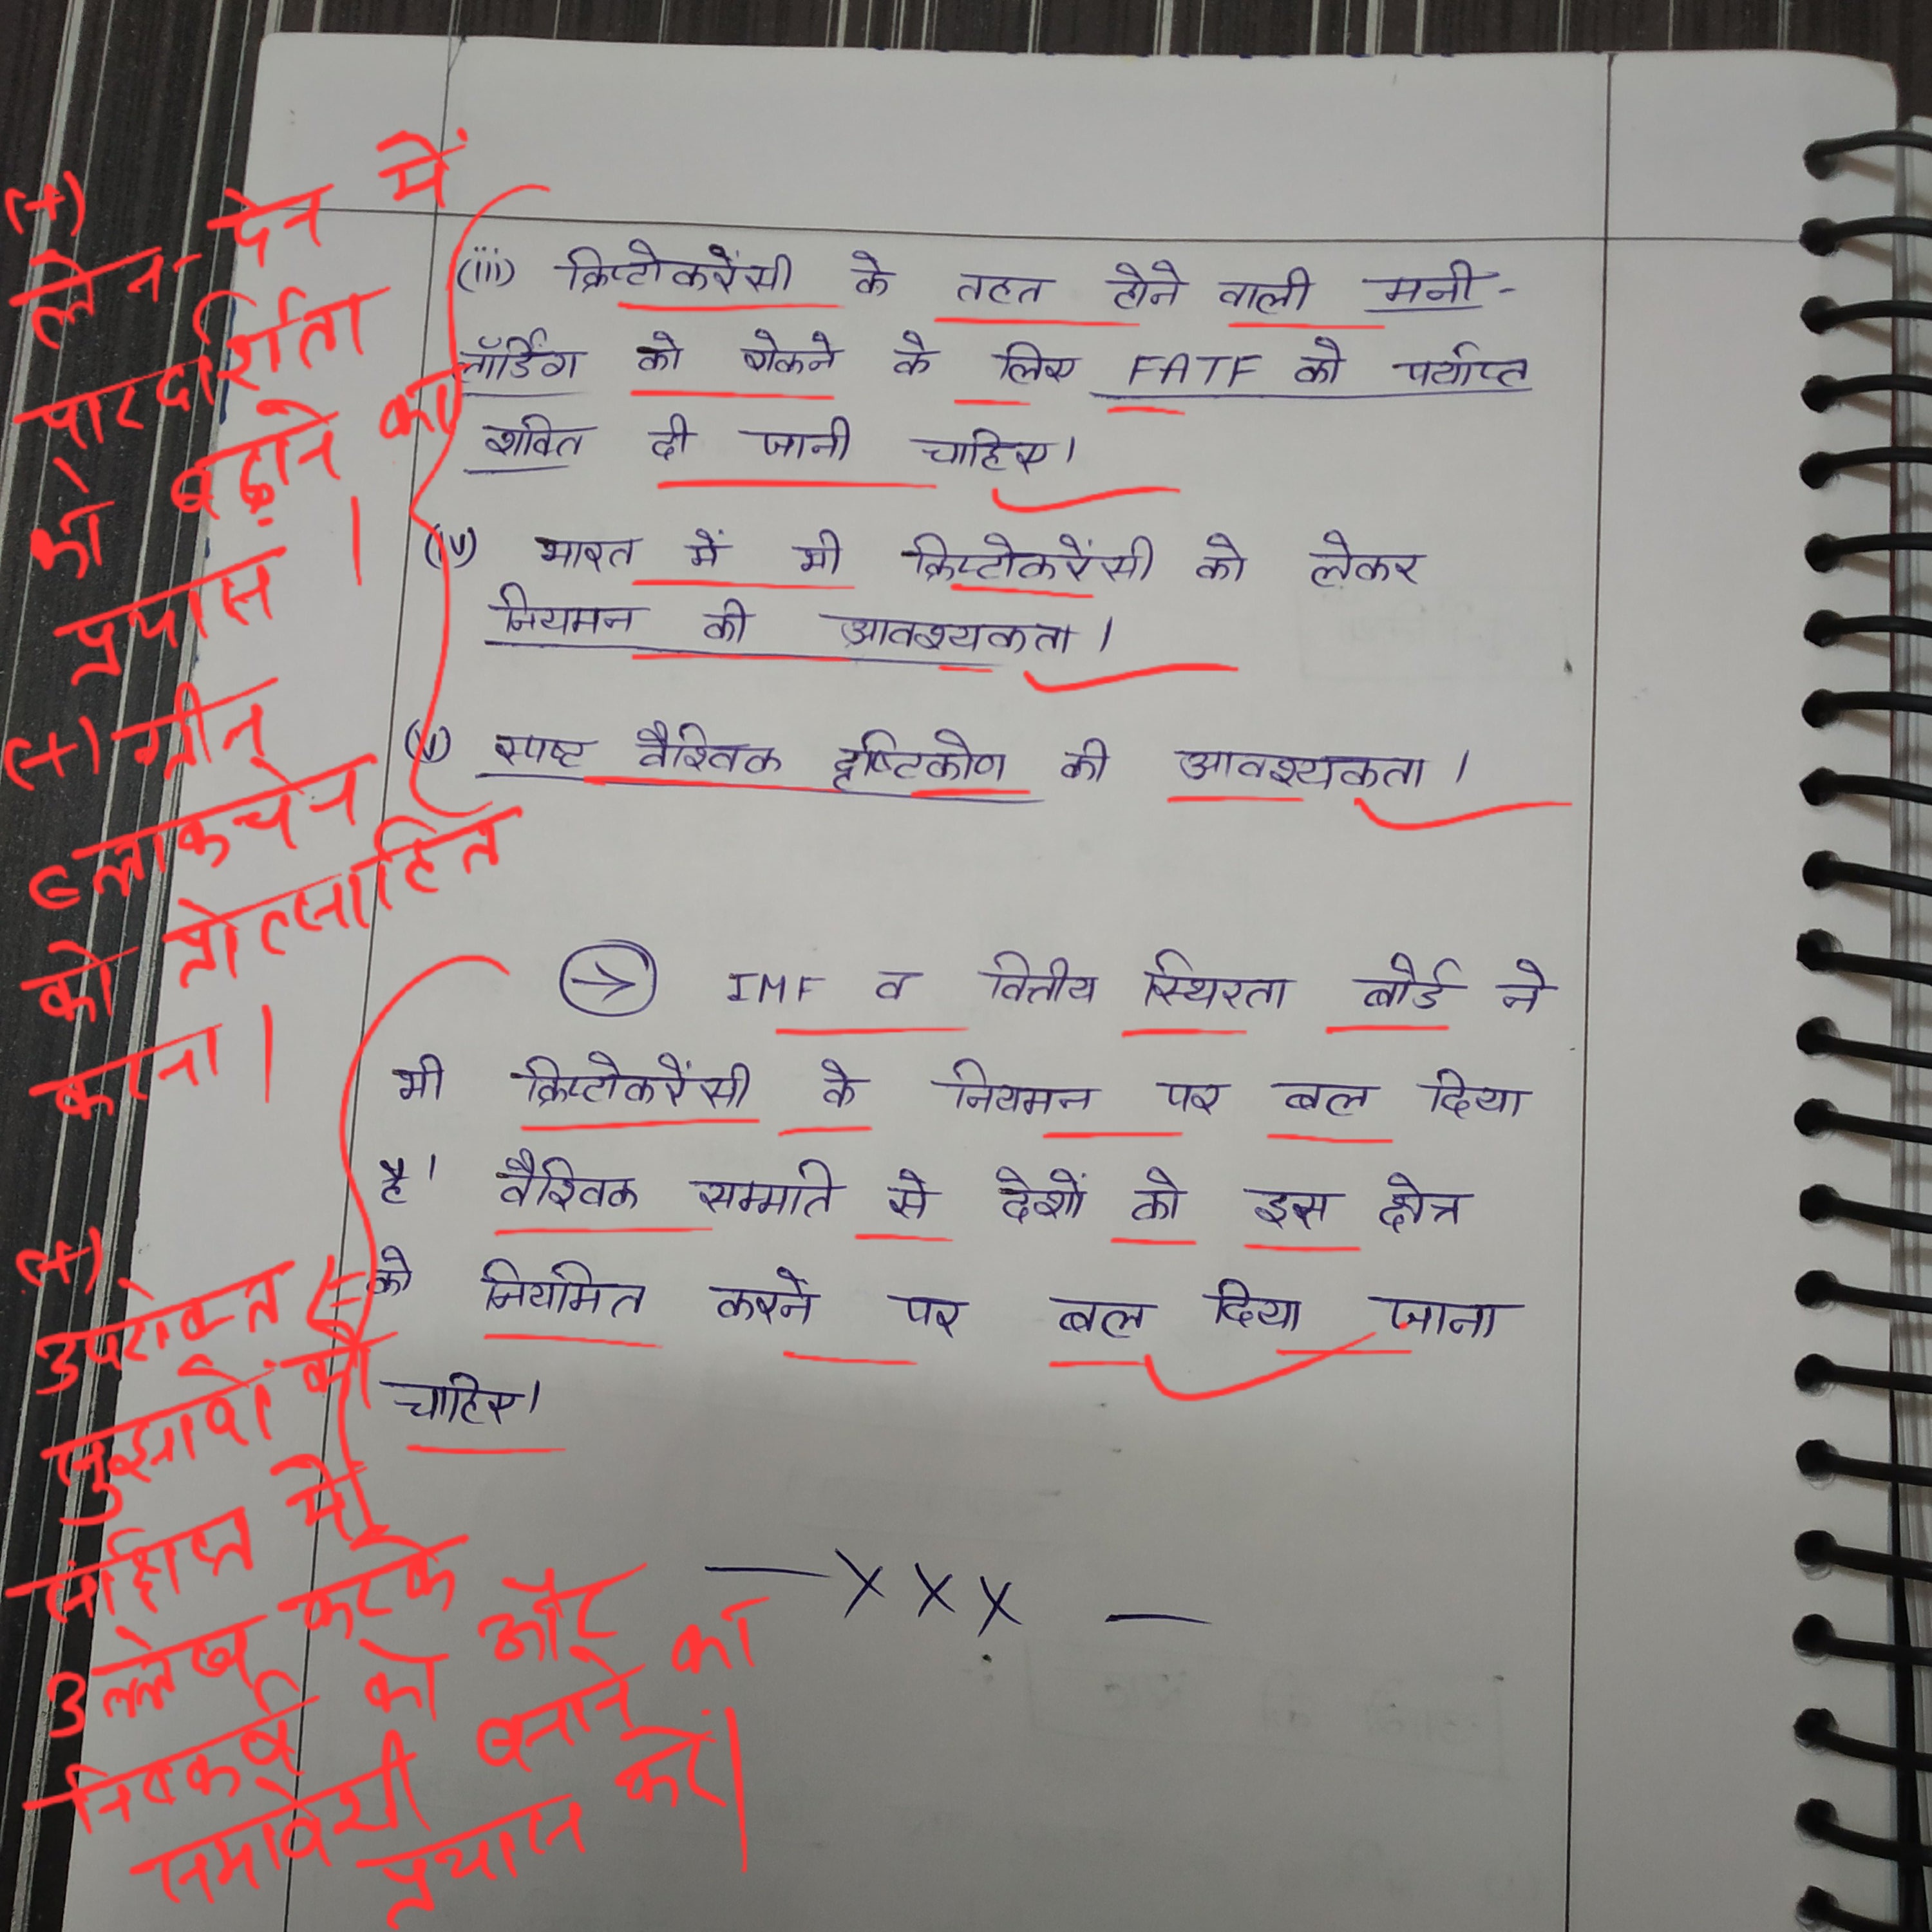 (+)
लेन-देन में
पारदर्शिता
को बढ़ाने का
प्रयास ।
(+) ग्रीन
ब्लाकचेन
को प्रोत्साहित
करना ।
(iii) क्रिप्टोकरेंसी के तहत होने वाली मनी-
लॉर्डिंग को रोकने के लिए FATF को पर्याप्त
शक्ति दी जानी चाहिए।
(iv) भारत में भी क्रिप्टोकरेंसी को लेकर
नियमन की आवश्यकता।
(v) स्पष्ट वैश्विक दृष्टिकोण की आवश्यकता।
→ IMF व वित्तीय स्थिरता बोर्ड ने
भी क्रिप्टोकरेंसी के नियमन पर बल दिया
है। वैश्विक सम्मति से देशों को इस क्षेत्र
को नियमित करने पर बल दिया जाना
चाहिए।
— x x x —
(+)
उपरोक्त
सुझावों को
संक्षिप्त में
उल्लेख करके
निष्कर्ष को और
समावेशी बनाने का
प्रयास करें।